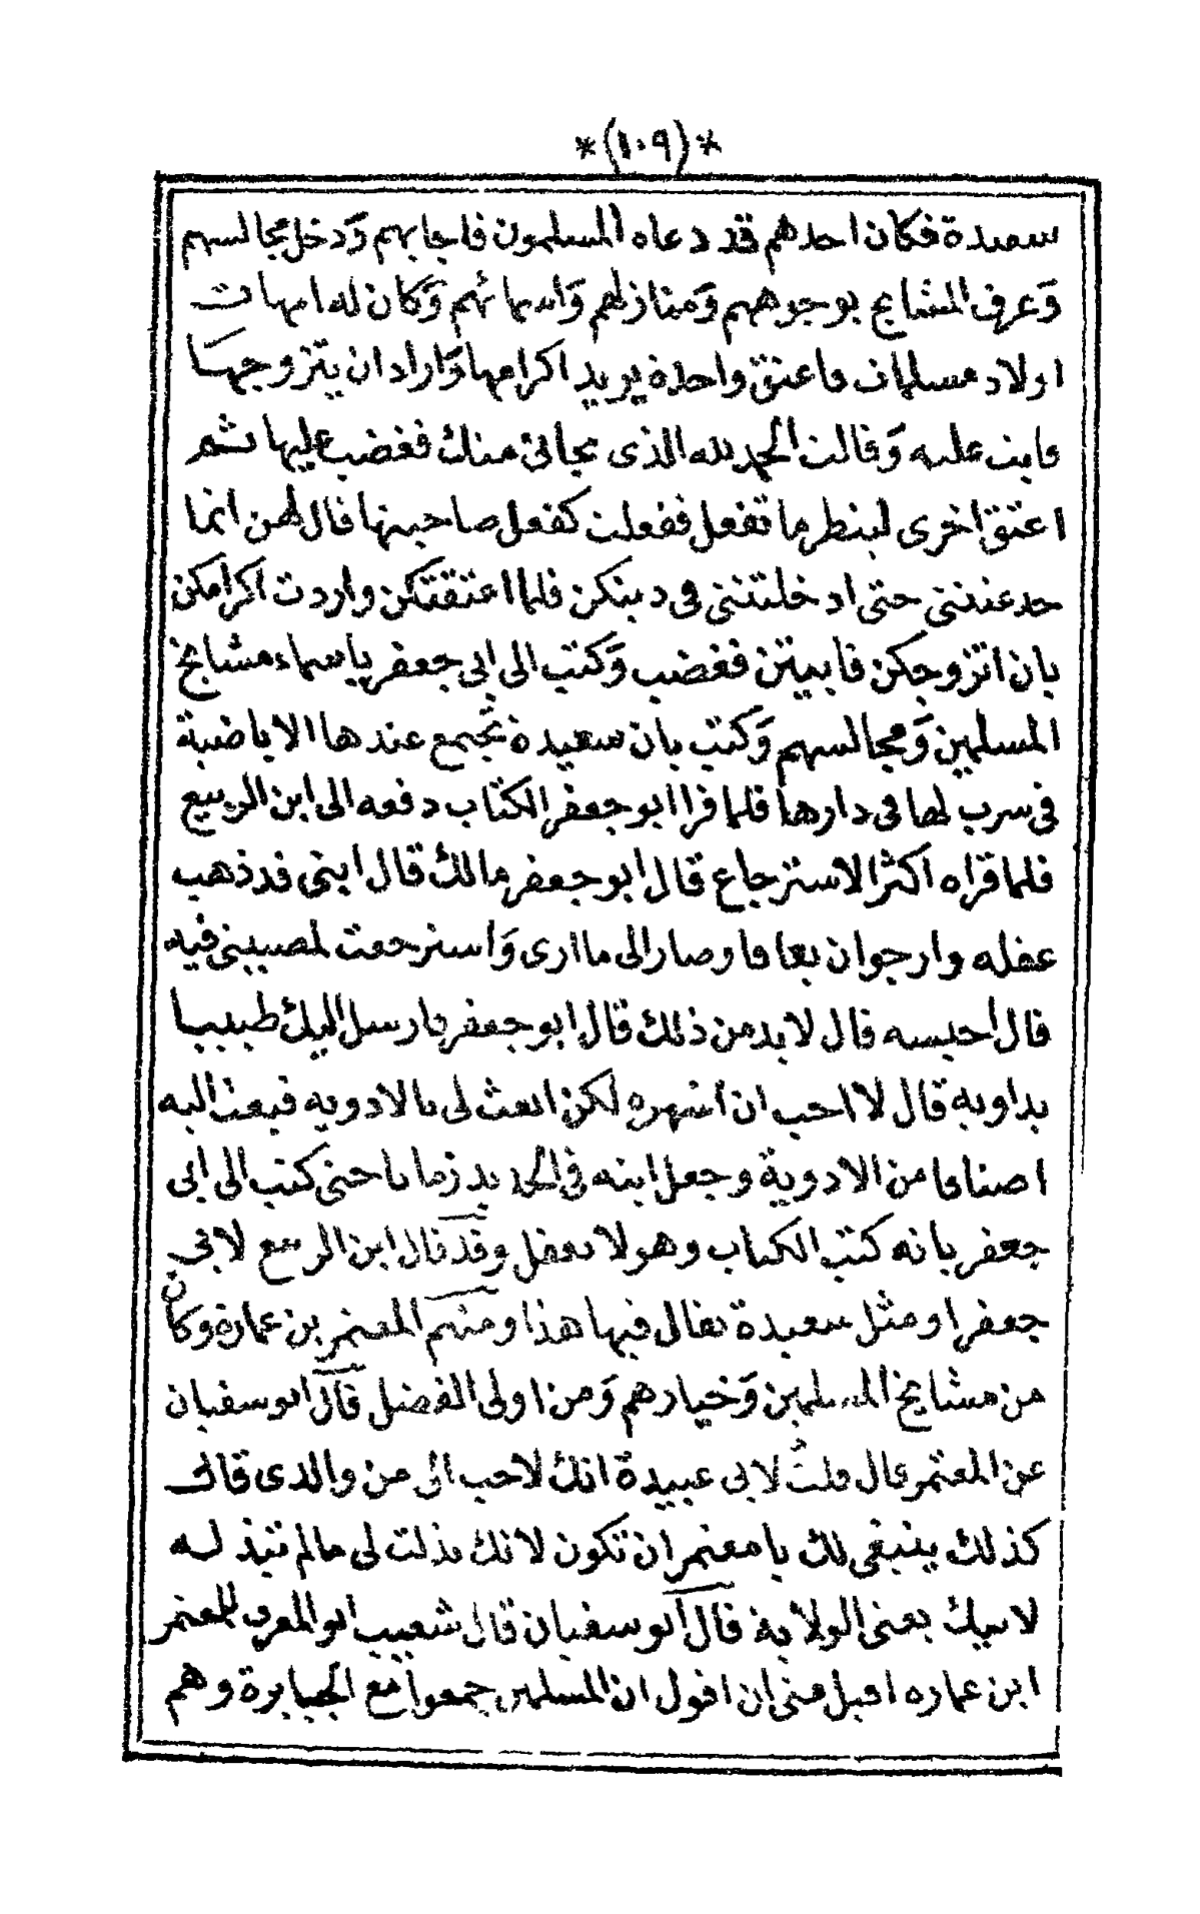 *(١٠٩)*
سعيدة فكان احدهم قد دعاه المسلمون فاجابهم وَدخل مجالسهم
وَعرف المشايخ بوجوههم وَمنازلهم وَاسمائهم وَكان له امهات
اولاد مسلمات فاعتق واحدة يريد اكرامها وَاراد ان يتزوجها
فابت عليه وَقالت الحمد لله الذى نجانى منك فغضب عليها ثم
اعتق اخرى لينظر ما تفعل ففعلت كفعل صاحبتها فقال لهن انما
خدعتننى حتى ادخلتننى فى دينكن فلما اعتقتكن واردت اكرامكن
بان اتزوجكن فابيتن فغضب وَكتب الى ابى جعفر باسماء مشايخ
المسلمين وَمجالسهم وَكتب بان سعيدة تجتمع عندها الاباضية
فى سرب لها فى دارها فلما قرا ابو جعفر الكتاب دفعه الى ابن الربيع
فلما قراه اكثر الاسترجاع قال ابو جعفر مالك قال ابنى قد ذهب
عقله وارجو ان يعافا وصار الى ما ارى وَاسترجعت لمصيبتى فيه
قال احبسه قال لا بد من ذلك قال ابو جعفر نارسل اليك طبيبا
يداويه قال لا احب ان اشهره لكن ابعث لى بالادويه فبعث اليه
اصنافا من الادوية وجعل ابنه فى الحديد زمانا حتى كتب الى ابى
جعفر بانه كتب الكتاب وهو لا يعقل وقد قال ابن الربيع لابى
جعفر او مثل سعيدة يقال فيها هذا ومنهم المعتمر بن عمارة وكان
من مشايخ المسلمين وَخيارهم وَمن اولى الفضل قال ابو سفيان
عن المعتمر قال قلتُ لابى عبيدة انك لاحب الى من والدى قال
كذلك ينبغى لك يا معتمر ان تكون لانك بذلت لى مالم تبذله
لابيك يعنى الولاية قال ابو سفيان قال شعيب ابو المعرف للمعتمر
ابن عماره اقبل منى ان اقول ان المسلمين جمعوا مع الجبابرة وهم